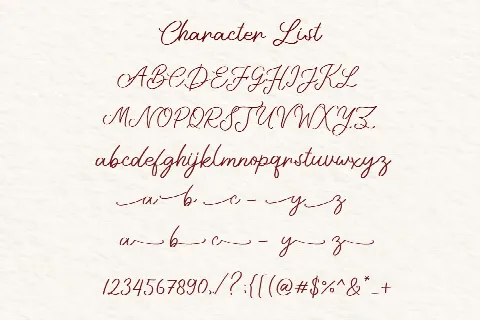 Character List
ABCDEFGHIJKL
MNOPQRSTUVWXYZ
abcdefghijklmnopqrstuvwxyz
a b c - y z
a b c - y z
1234567890,./?;{[(@#$%^&*_+